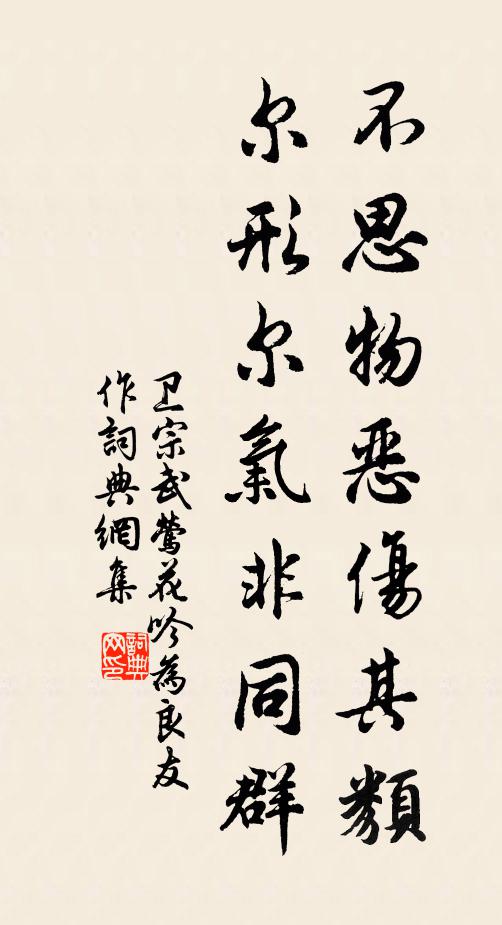 不思物惡傷其類
尔形尔氣非同群
卫宗武鶯花吟為良友
作詞典網集
詞典网印